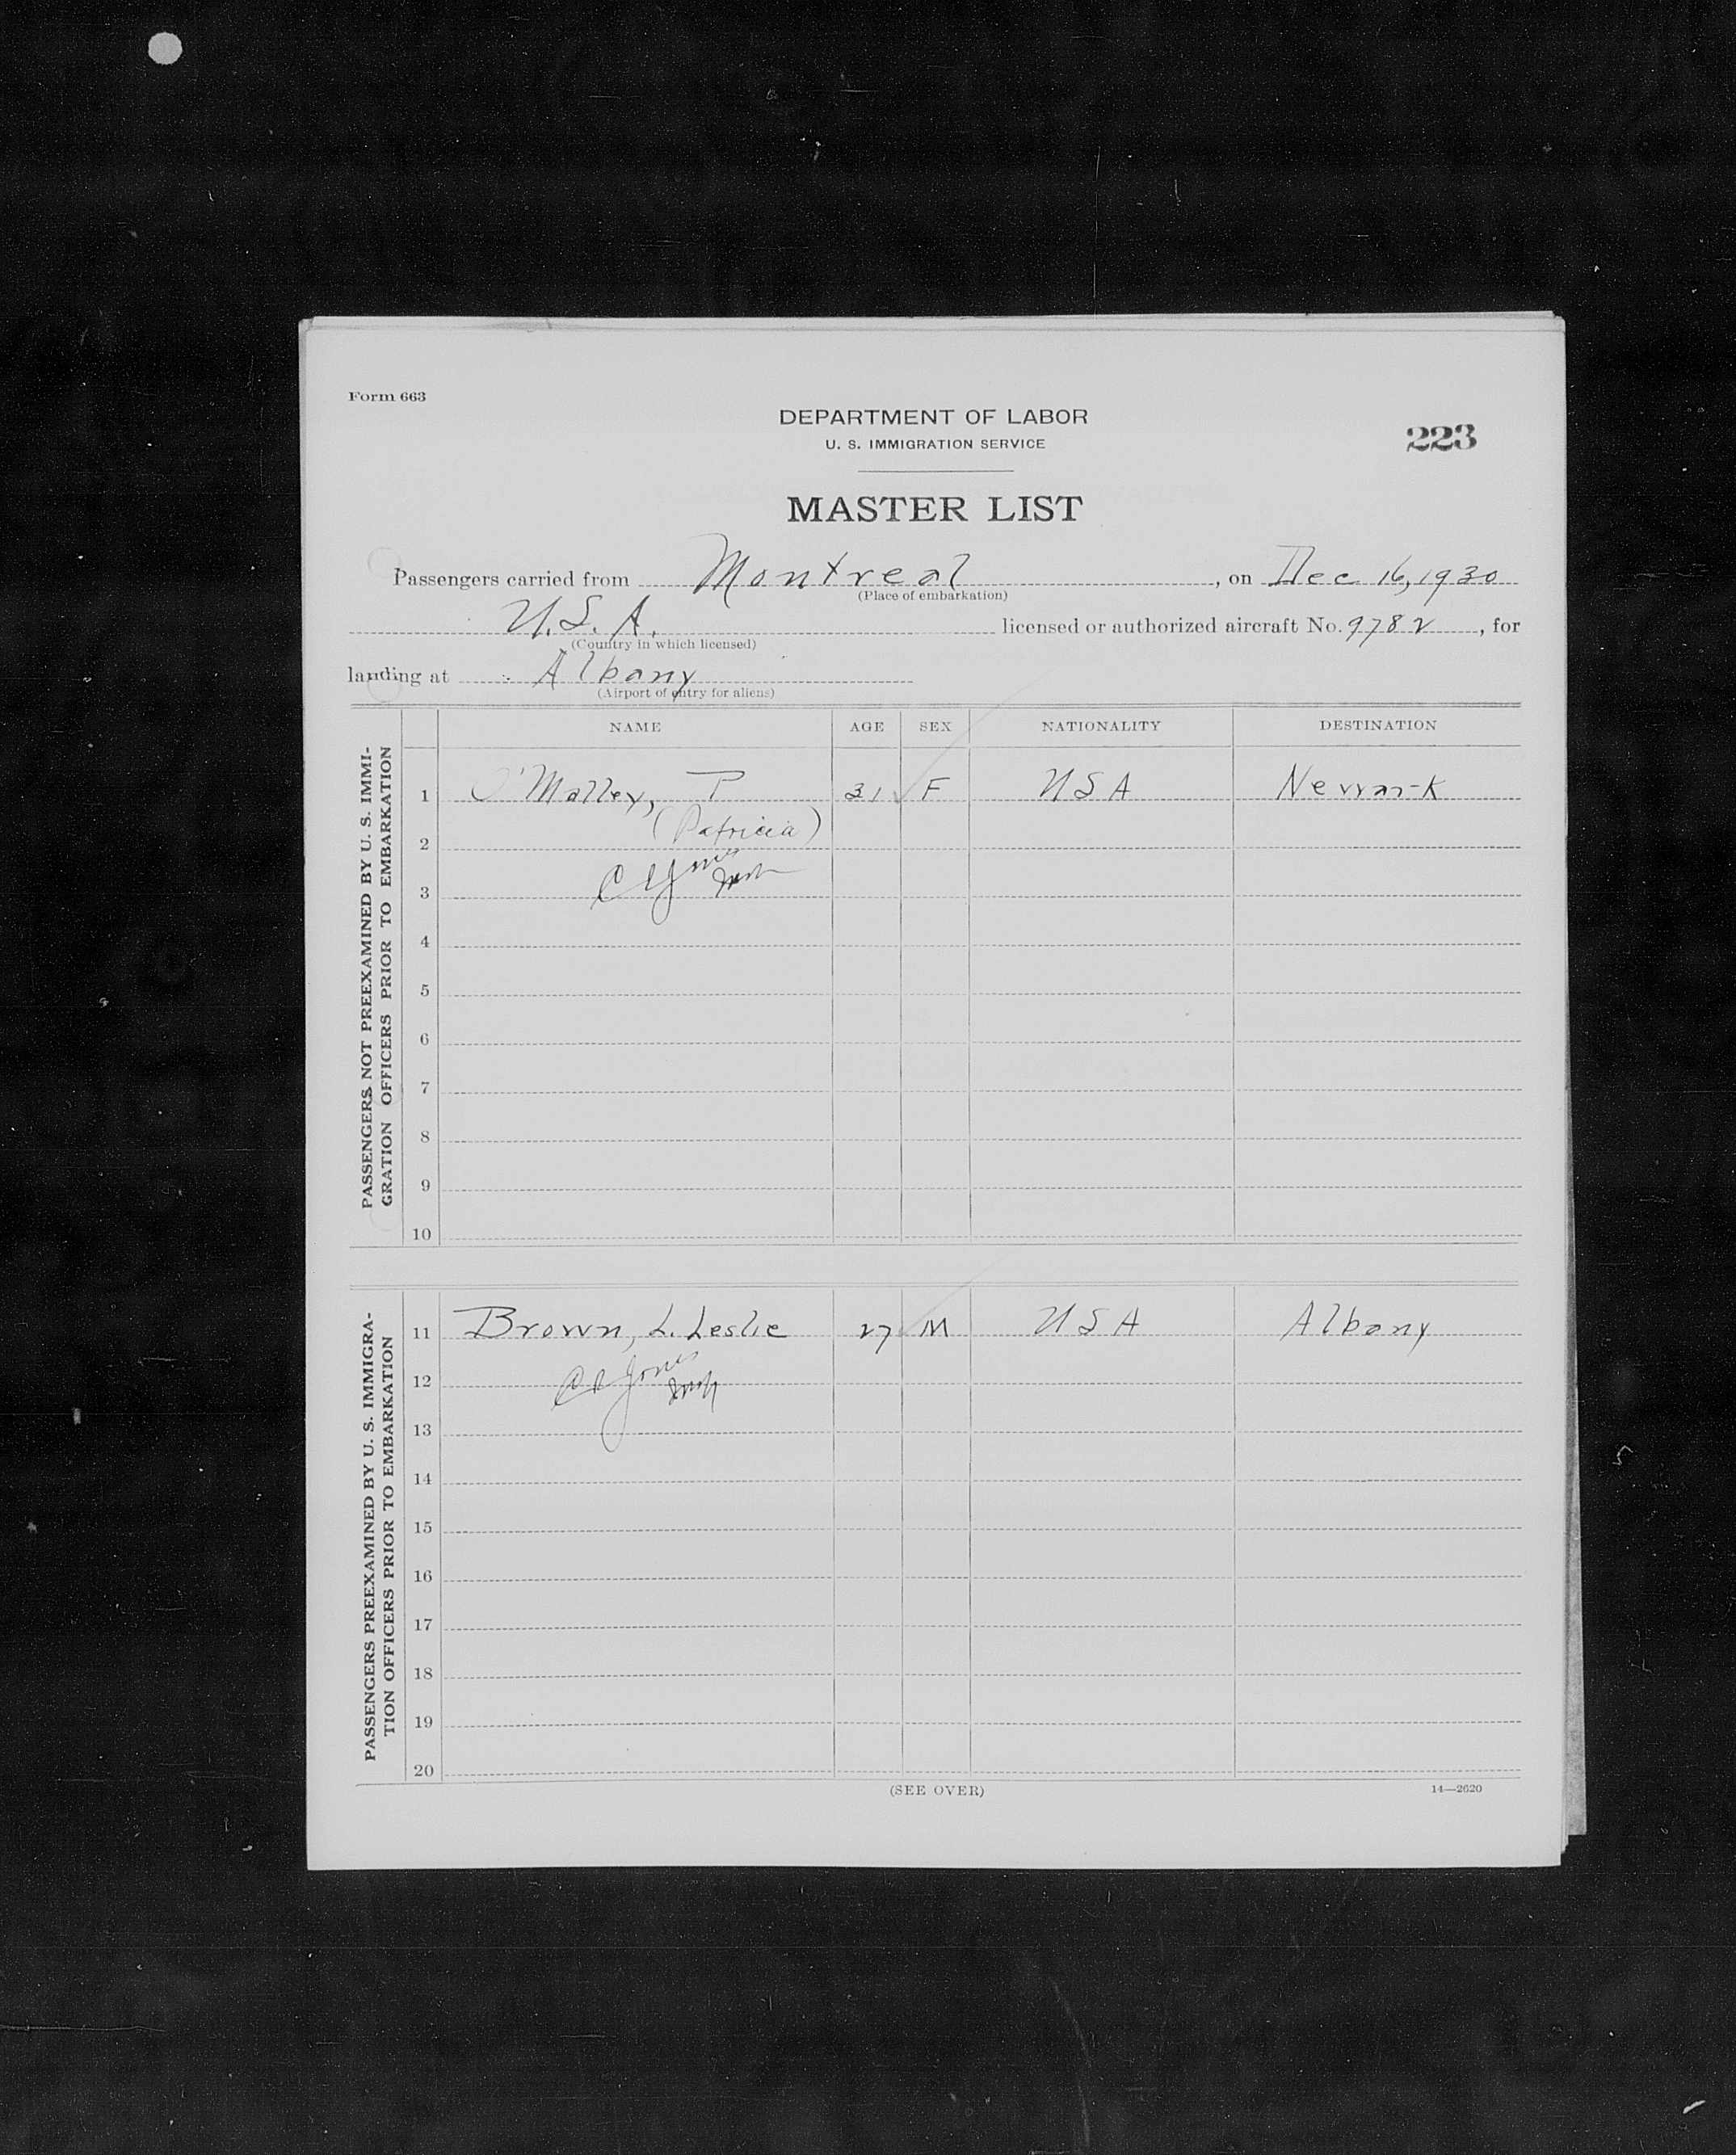 Form 663
DEPARTMENT OF LABOR
U. S. IMMIGRATION SERVICE
223
MASTER LIST
Passengers carried from Montreal, on Dec 16, 1930
(Place of embarkation)
U.S.A. licensed or authorized aircraft No. 9782, for
(Country in which licensed)
landing at Albany
(Airport of entry for aliens)
NAME AGE SEX NATIONALITY DESTINATION
PASSENGERS NOT PREEXAMINED BY U. S. IMMI-
GRATION OFFICERS PRIOR TO EMBARKATION
1 O'Malley, P 31 F USA Newark
(Patricia)
2
3
4
5
6
7
8
9
10
PASSENGERS PREEXAMINED BY U. S. IMMIGRA-
TION OFFICERS PRIOR TO EMBARKATION
11 Brown, L. Leslie 27 M USA Albany
12 Jones
13
14
15
16
17
18
19
20
(SEE OVER)
14—2620